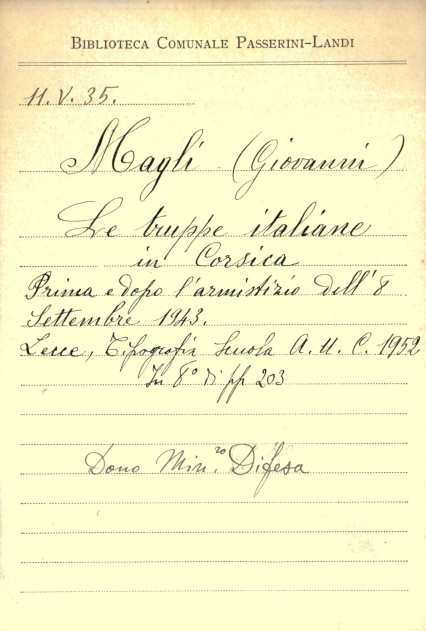 BIBLIOTECA COMUNALE PASSERINI-LANDI
11. V. 35.
Magli (Giovanni)
Le truppe italiane
in Corsica
Prima e dopo l'armistizio dell'8
Settembre 1943.
Lecce, Tipografia Scuola A. U. C. 1952
In 8° di pp 203
Dono Min.ro Difesa